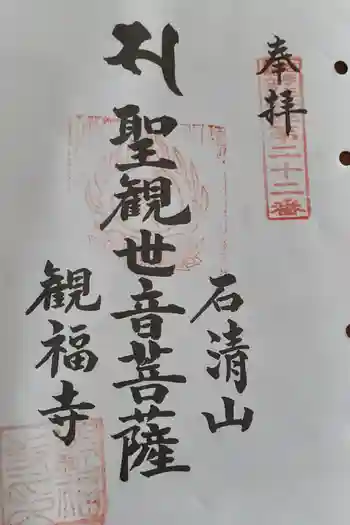 奉拝
二十二番
石清山
聖観世音菩薩
観福寺